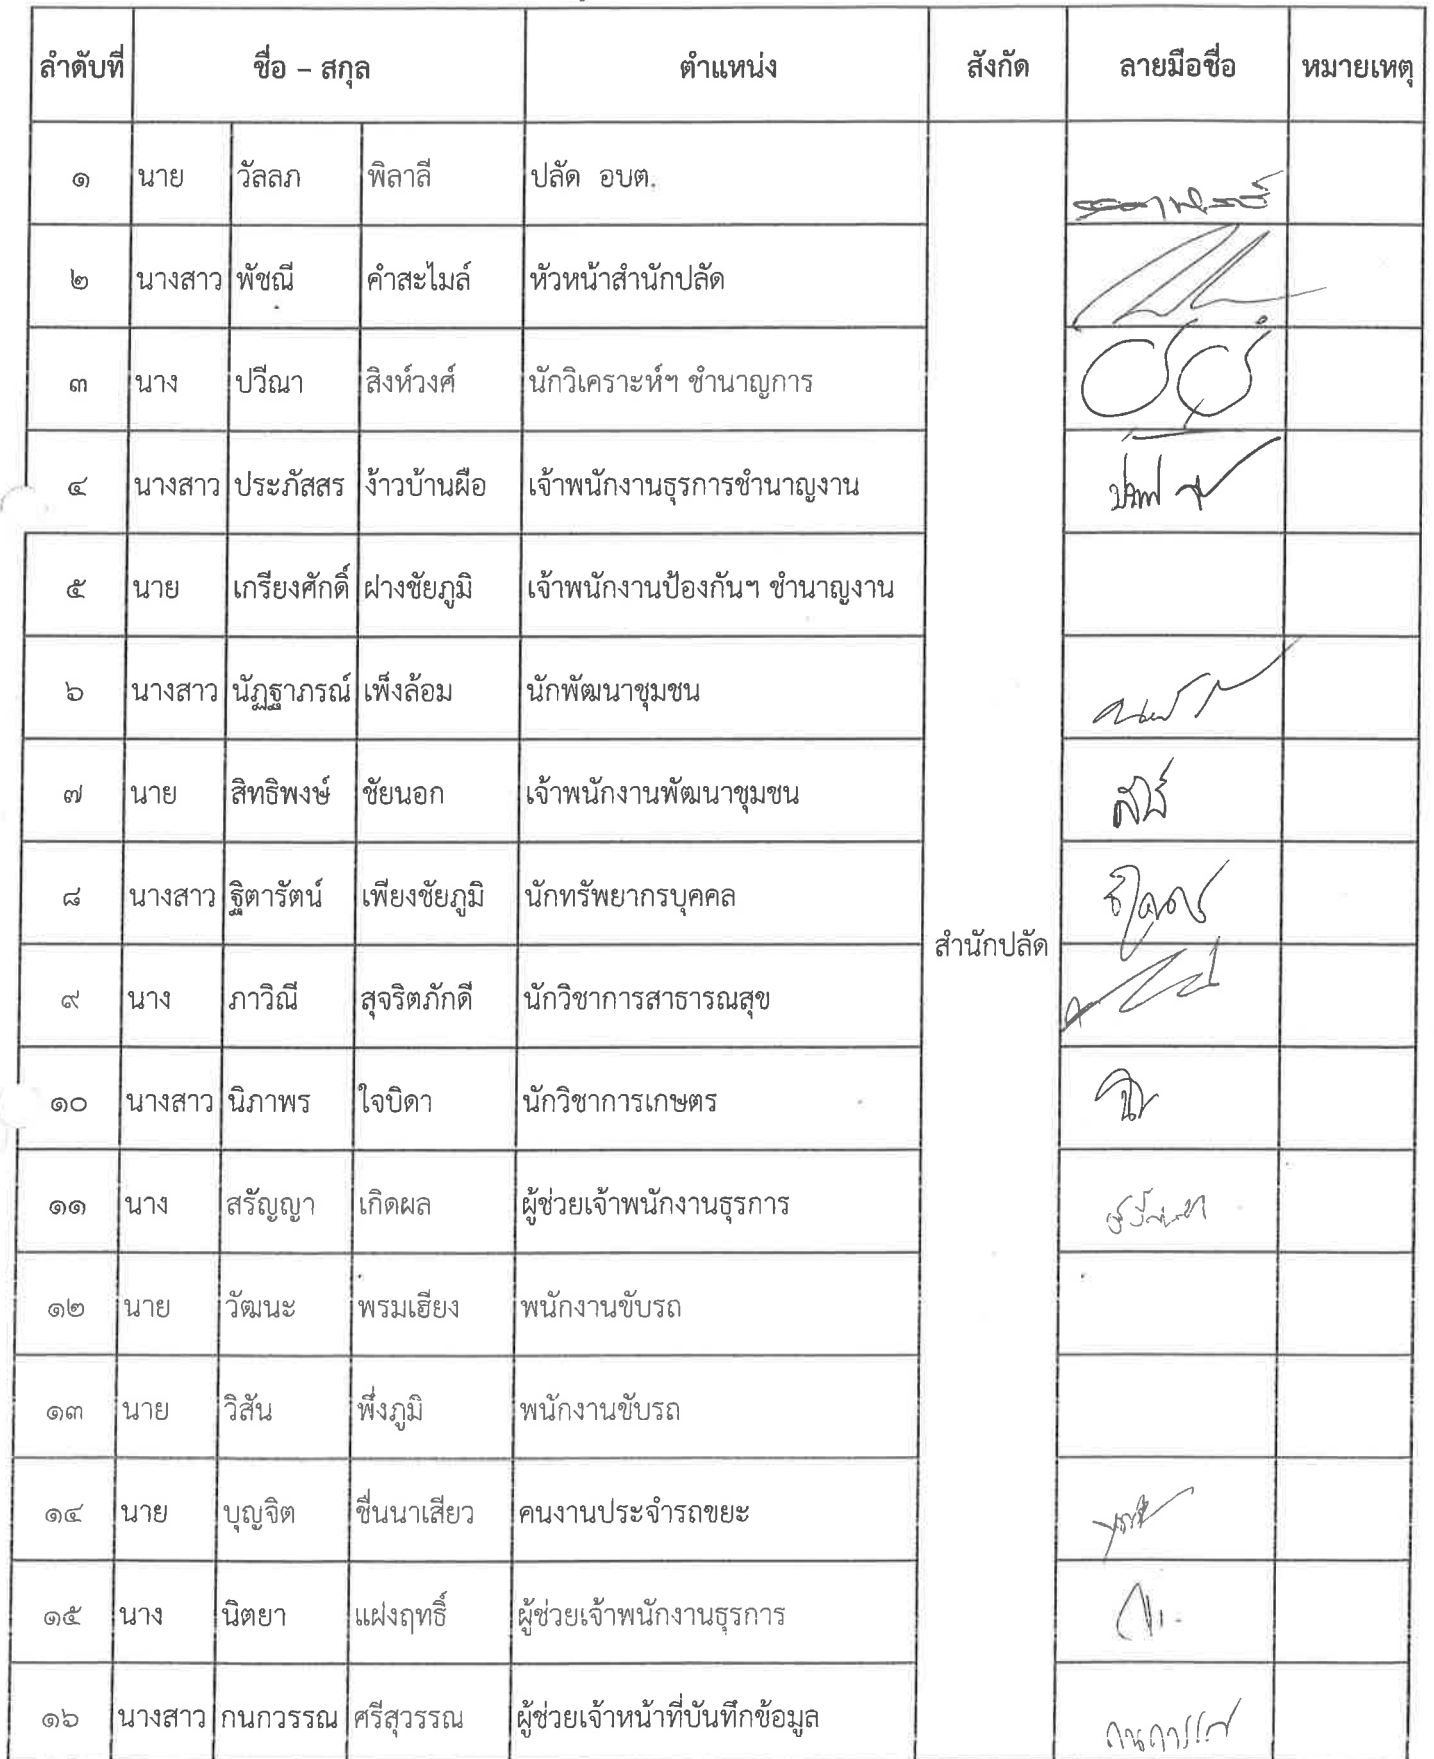 ลำดับที่ ชื่อ – สกุล ตำแหน่ง สังกัด ลายมือชื่อ หมายเหตุ
๑ นาย วัลลภ พิลาลี ปลัด อบต.
๒ นางสาว พัชณี คำสะไมล์ หัวหน้าสำนักปลัด
๓ นาง ปวีณา สิงห์วงศ์ นักวิเคราะห์ฯ ชำนาญการ
๔ นางสาว ประภัสสร ง้าวบ้านผือ เจ้าพนักงานธุรการชำนาญงาน
๕ นาย เกรียงศักดิ์ ฝางชัยภูมิ เจ้าพนักงานป้องกันฯ ชำนาญงาน
๖ นางสาว นัฏฐาภรณ์ เพ็งล้อม นักพัฒนาชุมชน
๗ นาย สิทธิพงษ์ ชัยนอก เจ้าพนักงานพัฒนาชุมชน
๘ นางสาว ฐิตารัตน์ เพียงชัยภูมิ นักทรัพยากรบุคคล
สำนักปลัด
๙ นาง ภาวิณี สุจริตภักดี นักวิชาการสาธารณสุข
๑๐ นางสาว นิภาพร ใจบิดา นักวิชาการเกษตร
๑๑ นาง สรัญญา เกิดผล ผู้ช่วยเจ้าพนักงานธุรการ
๑๒ นาย วัฒนะ พรมเฮียง พนักงานขับรถ
๑๓ นาย วิสัน พึ่งภูมิ พนักงานขับรถ
๑๔ นาย บุญจิต ชื่นนาเสียว คนงานประจำรถขยะ
๑๕ นาง นิตยา แฝงฤทธิ์ ผู้ช่วยเจ้าพนักงานธุรการ
๑๖ นางสาว กนกวรรณ ศรีสุวรรณ ผู้ช่วยเจ้าหน้าที่บันทึกข้อมูล